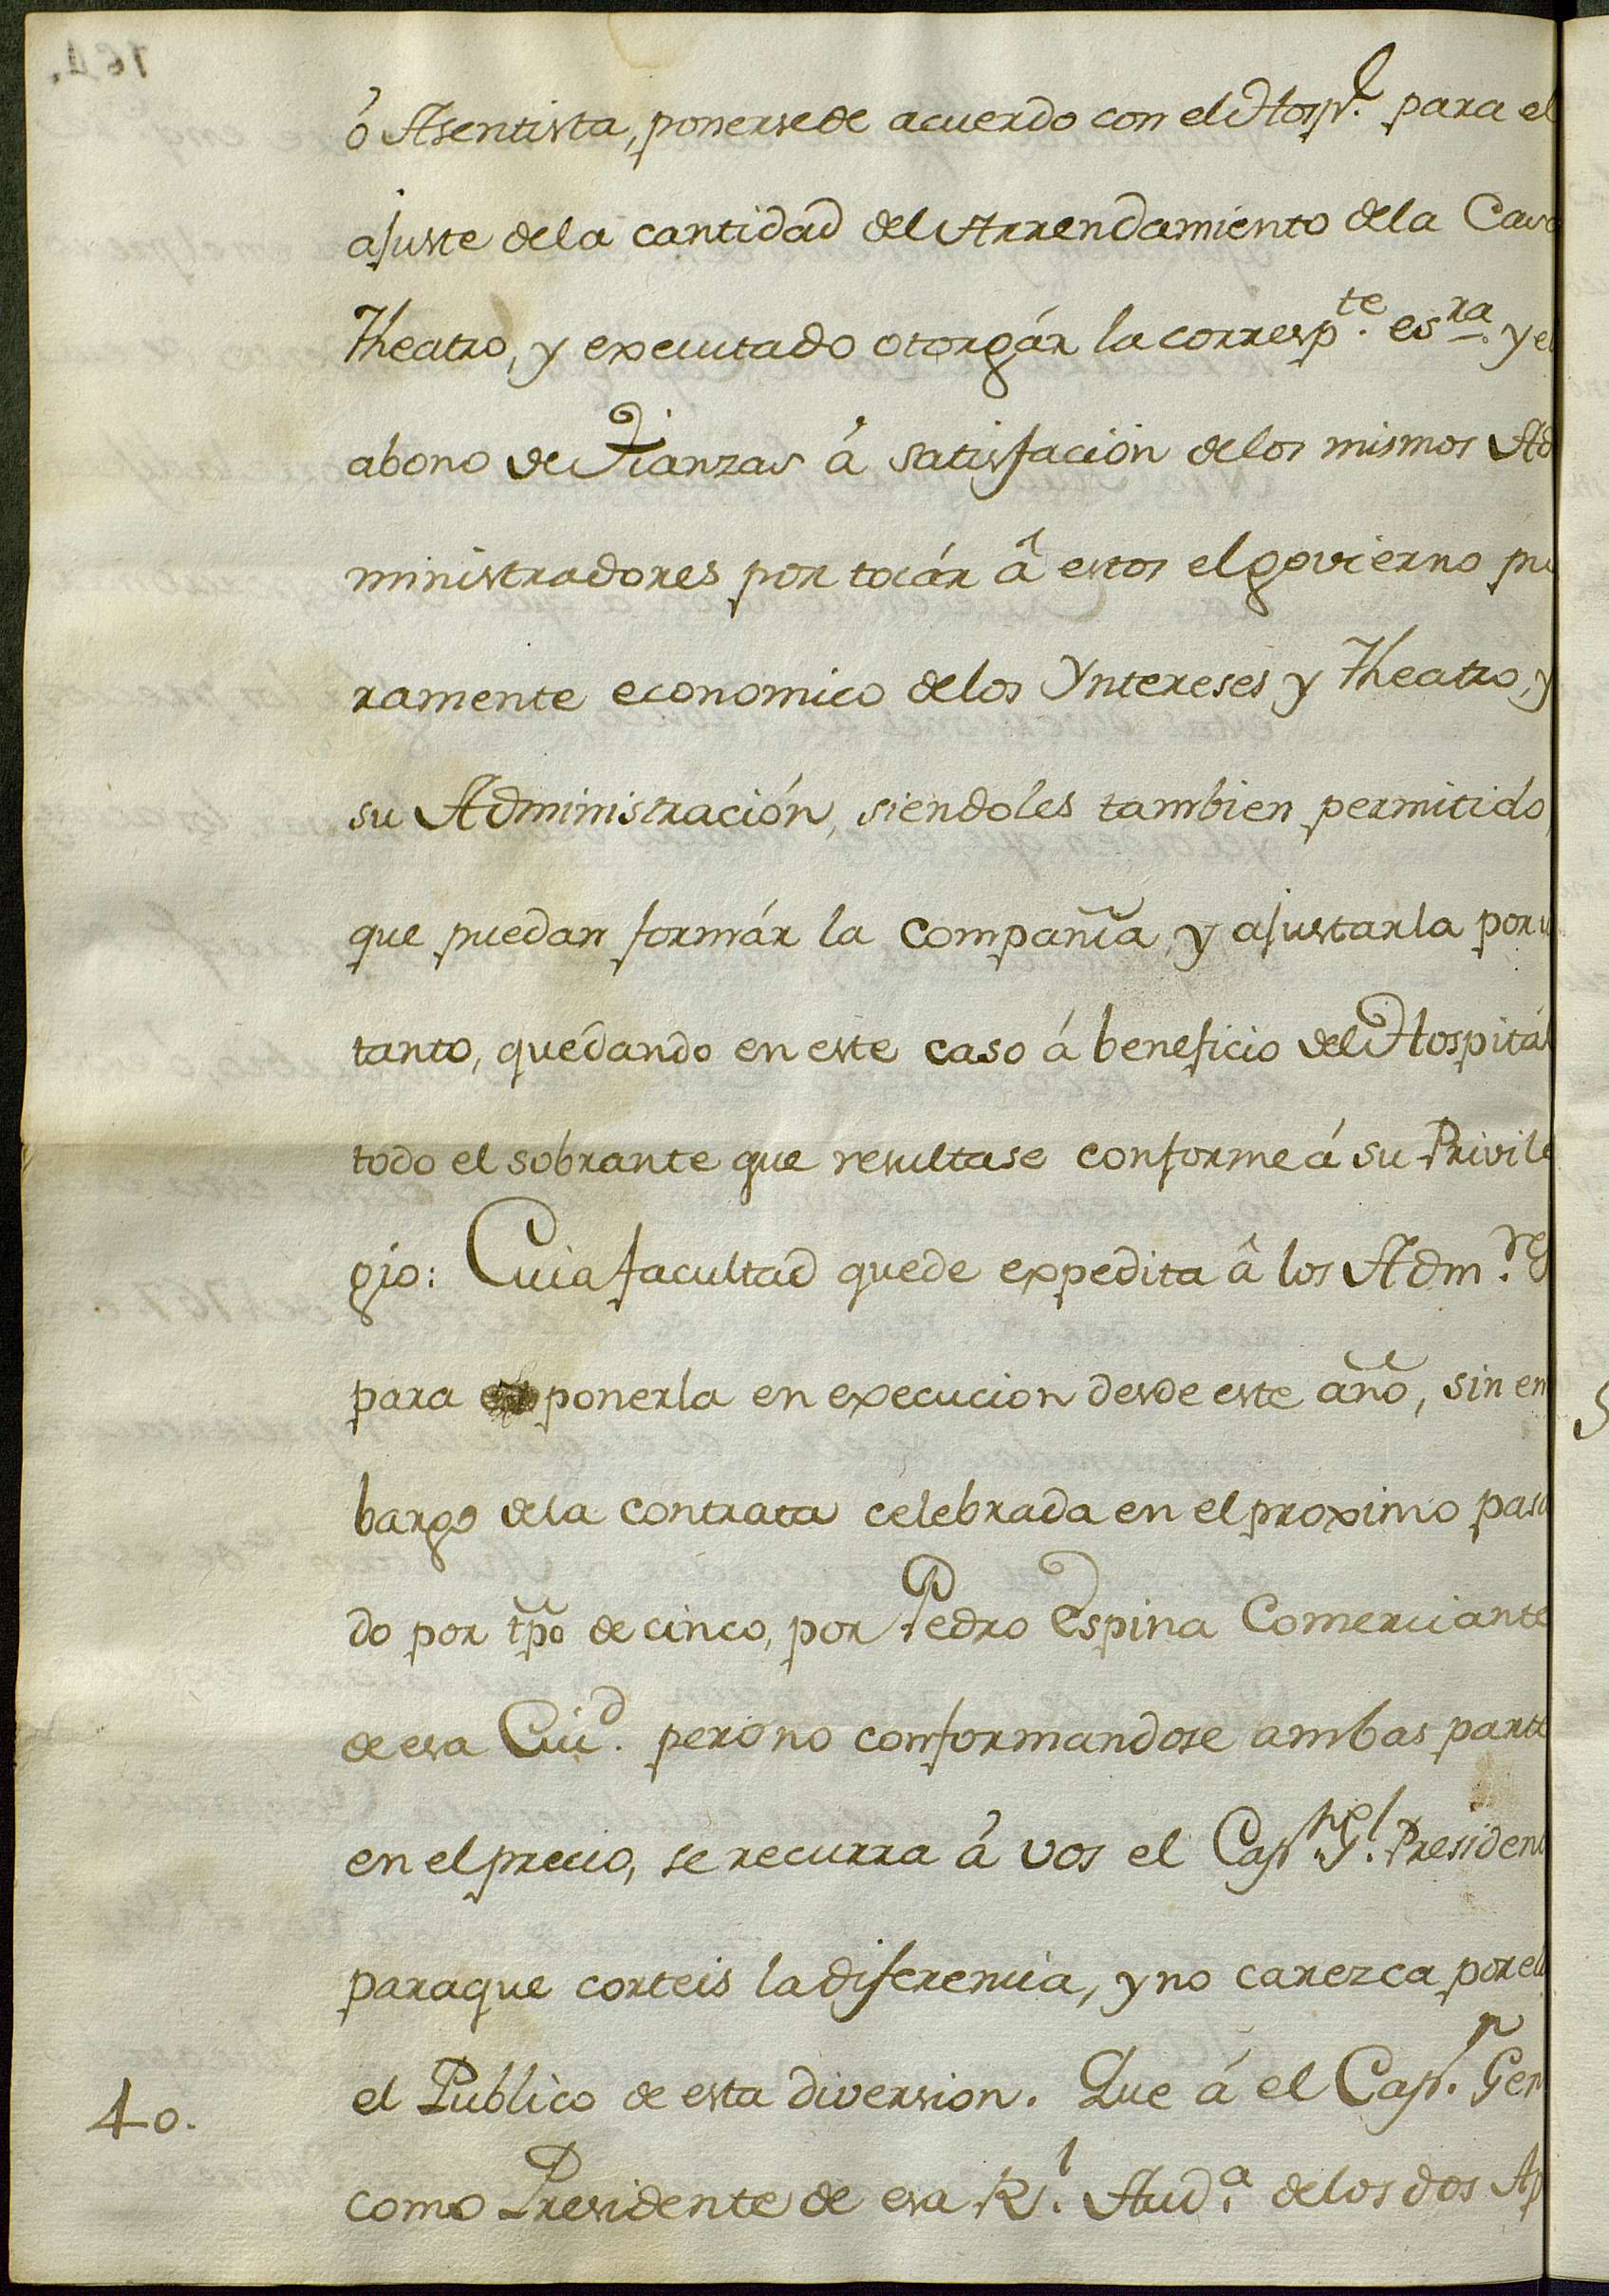 ó Asentista, ponerse de acuerdo con el Hosp.l para el
ajuste dela cantidad del Arrendamiento dela Casa
Theatro, y executado otorgár la corresp.te esra. y el
abono de Fianzas á satisfación delos mismos Ad
ministradores por tocár â estos el govierno pu
ramente economico delos Yntereses y Theatro, y
su Administración, siendoles tambien permitido,
que puedan formár la Compañia, y ajustarla por u
tanto, quedando en este caso á beneficio del Hospitál
todo el sobrante que resultase conforme á su Privile
gio: Cuia facultad quede expedita â los Adm.res
para ponerla en execucion desde este año, sin em
bargo dela contrata celebrada en el proximo pasa
do por tpõ de cinco, por Pedro Espina Comerciante
de esa Ciud. pero no conformandose ambas parte
en el precio, se recurra á vos el Cap.n G.l President
paraque corteis la diferencia, y no carezca por el
el Publico de esta diversion. Que á el Cap.n Gen
como Presidente de esa R.l Aud.a delos dos Ap
4o.
164.